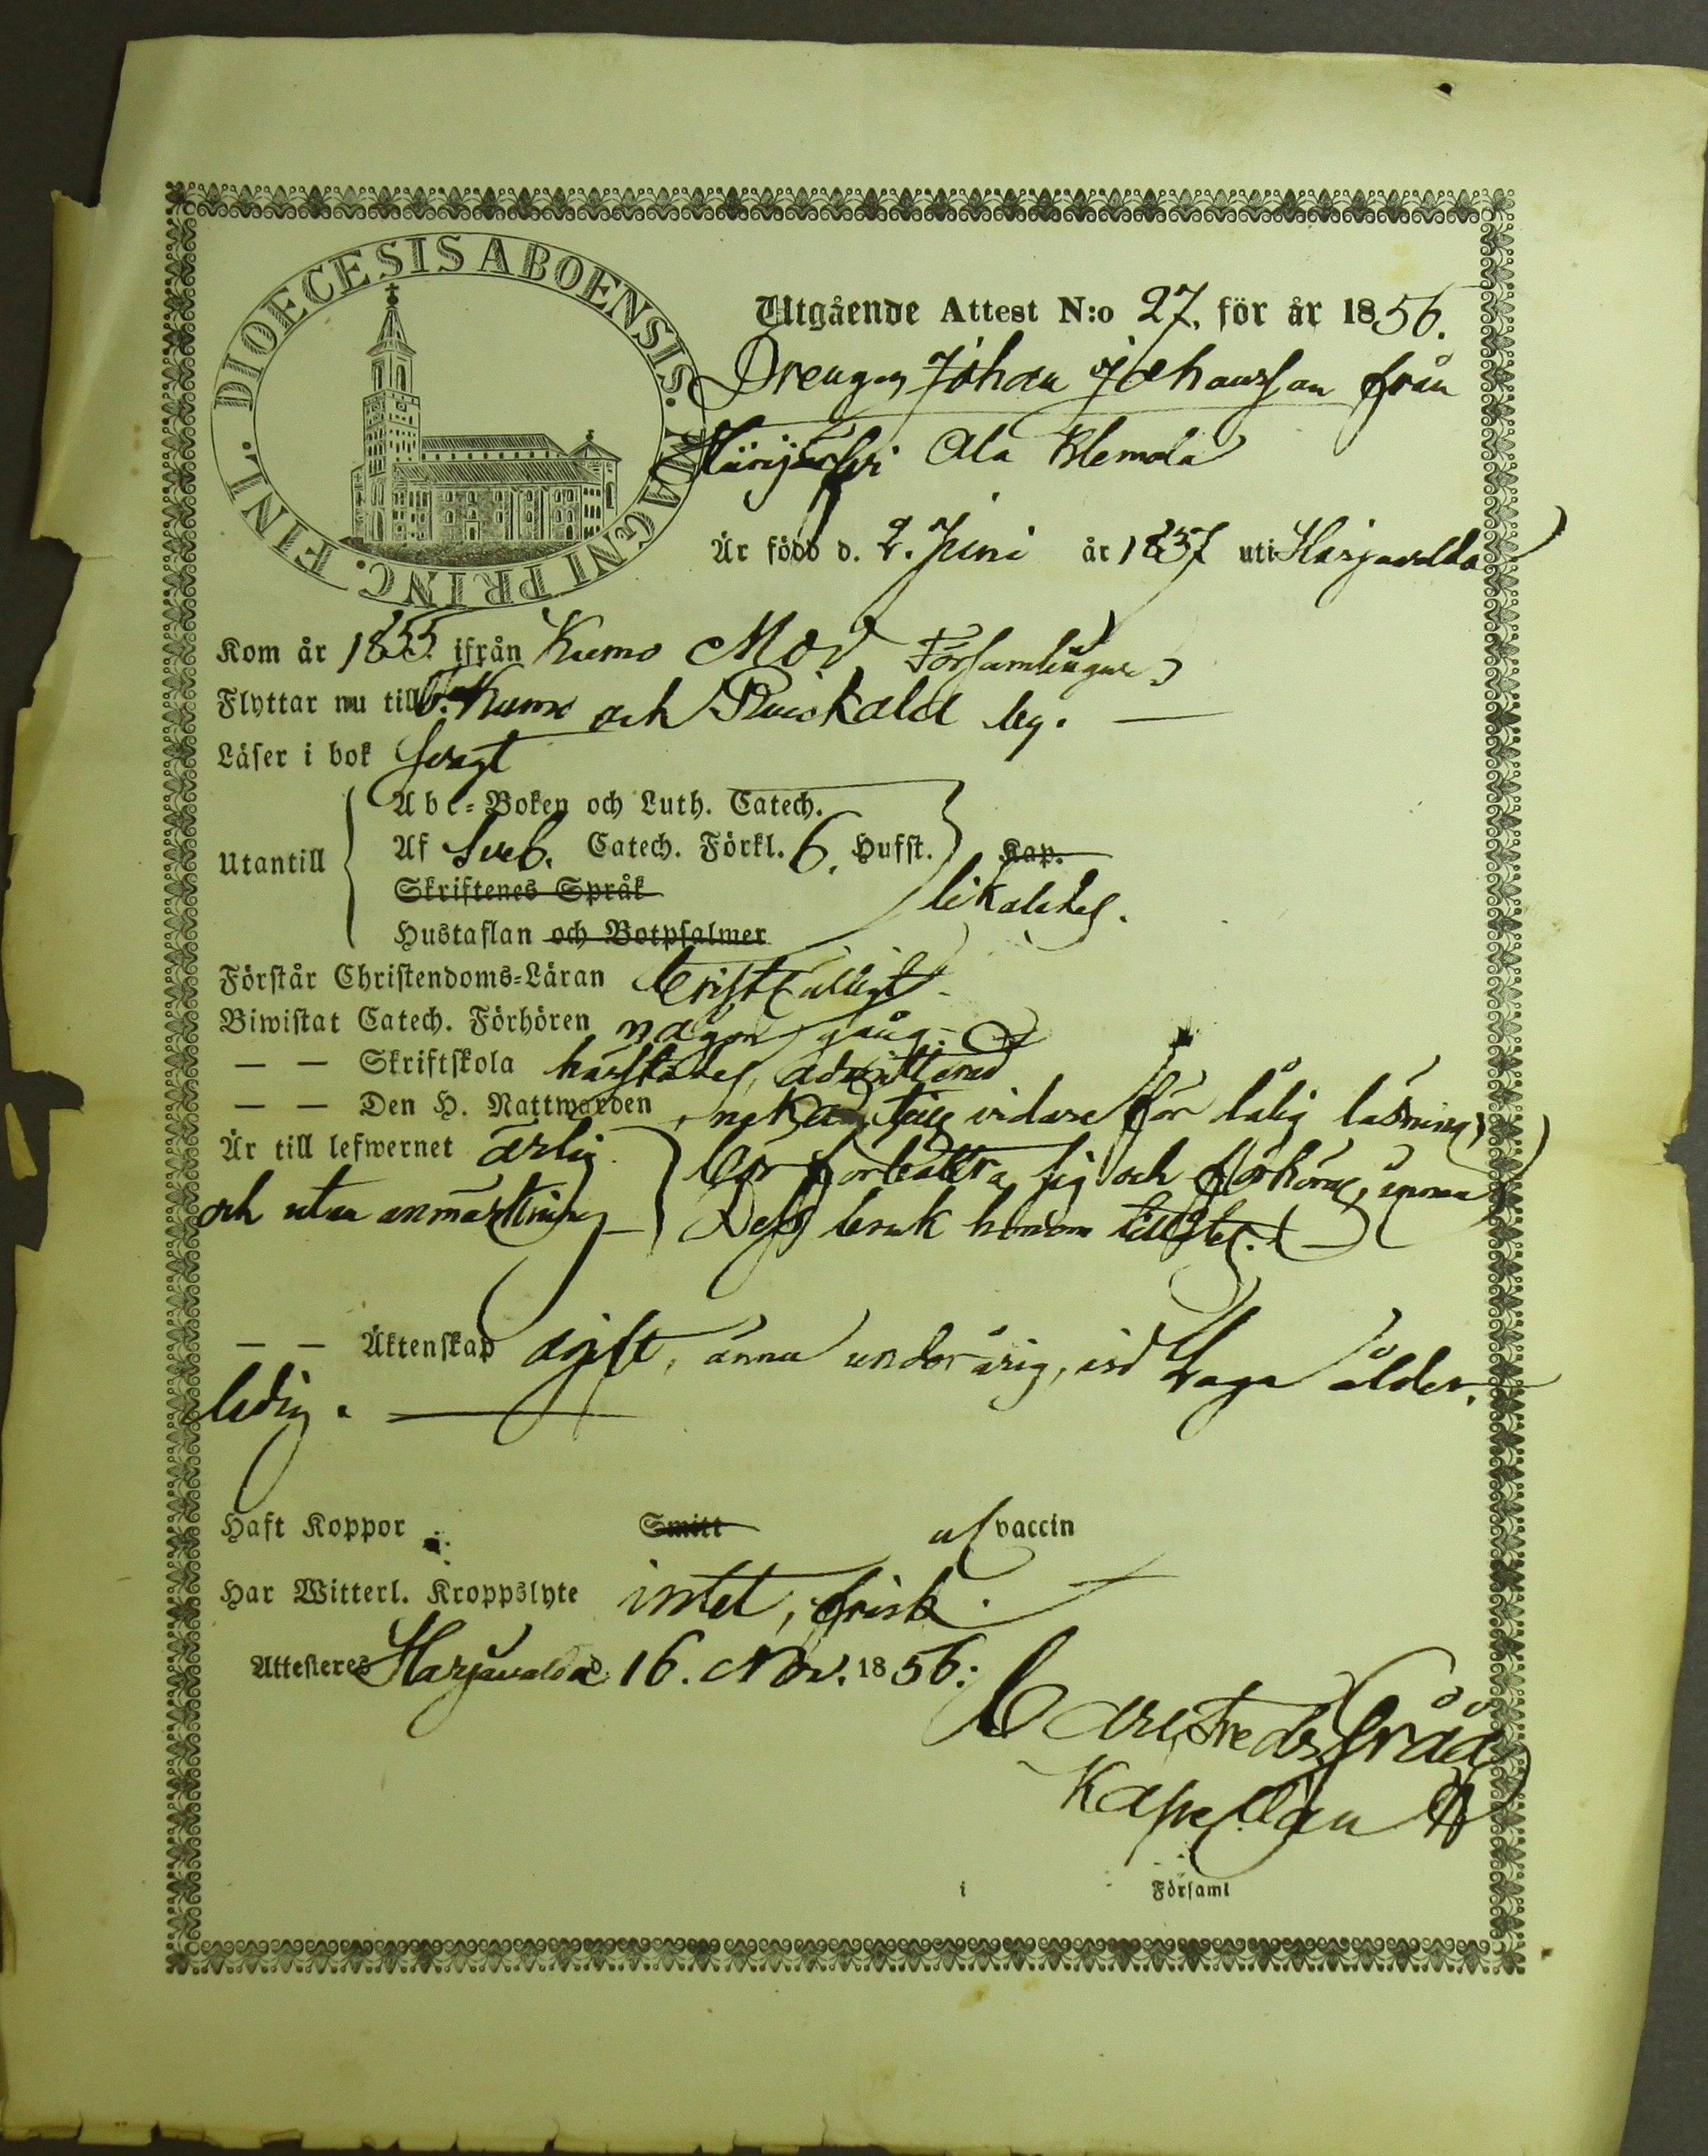 DIOECESIS ABOENSIS. MAGNI PRINC. FINL.
Utgående Attest N:o 27. för år 1856.
Drengen Johan Johansson från
Ala Klemola
Är född d. 2. Juni år 1837 uti Harjavalda
Kom år 1855. ifrån Kumo Mod Församlingar
Flyttar nu till Kumo och Ruiskala by. —
Läser i bok svagt
Utantill
Abc-Boken och Luth. Catech.
Af Sveb. Catech. Förkl. 6. Hufst. Kap.
Skriftenes Språk
likaledes.
Hustaflan och Botpsalmer
Förstår Christendoms-Läran bristfälligt.
Biwistat Catech. Förhören någon gång.
— — Skriftskola härstädes, admitterad
— — Den H. Nattwarden nekad till vidare för dålig läsning,
Är till lefwernet ärlig bör förbättra sig och förhöras, innan
och utan anmärkning — Dess bruk honom tillåtes.
— — Äktenskap ogift, ännu underårig, vid laga ålder,
ledig. —
Haft Koppor Smitt af vaccin
Har Witterl. Kroppslyte intet, frisk.
Attesteres Harjavalda d. 16. Nov. 1856.
Carl Fredr.
Kapellan
i Församl